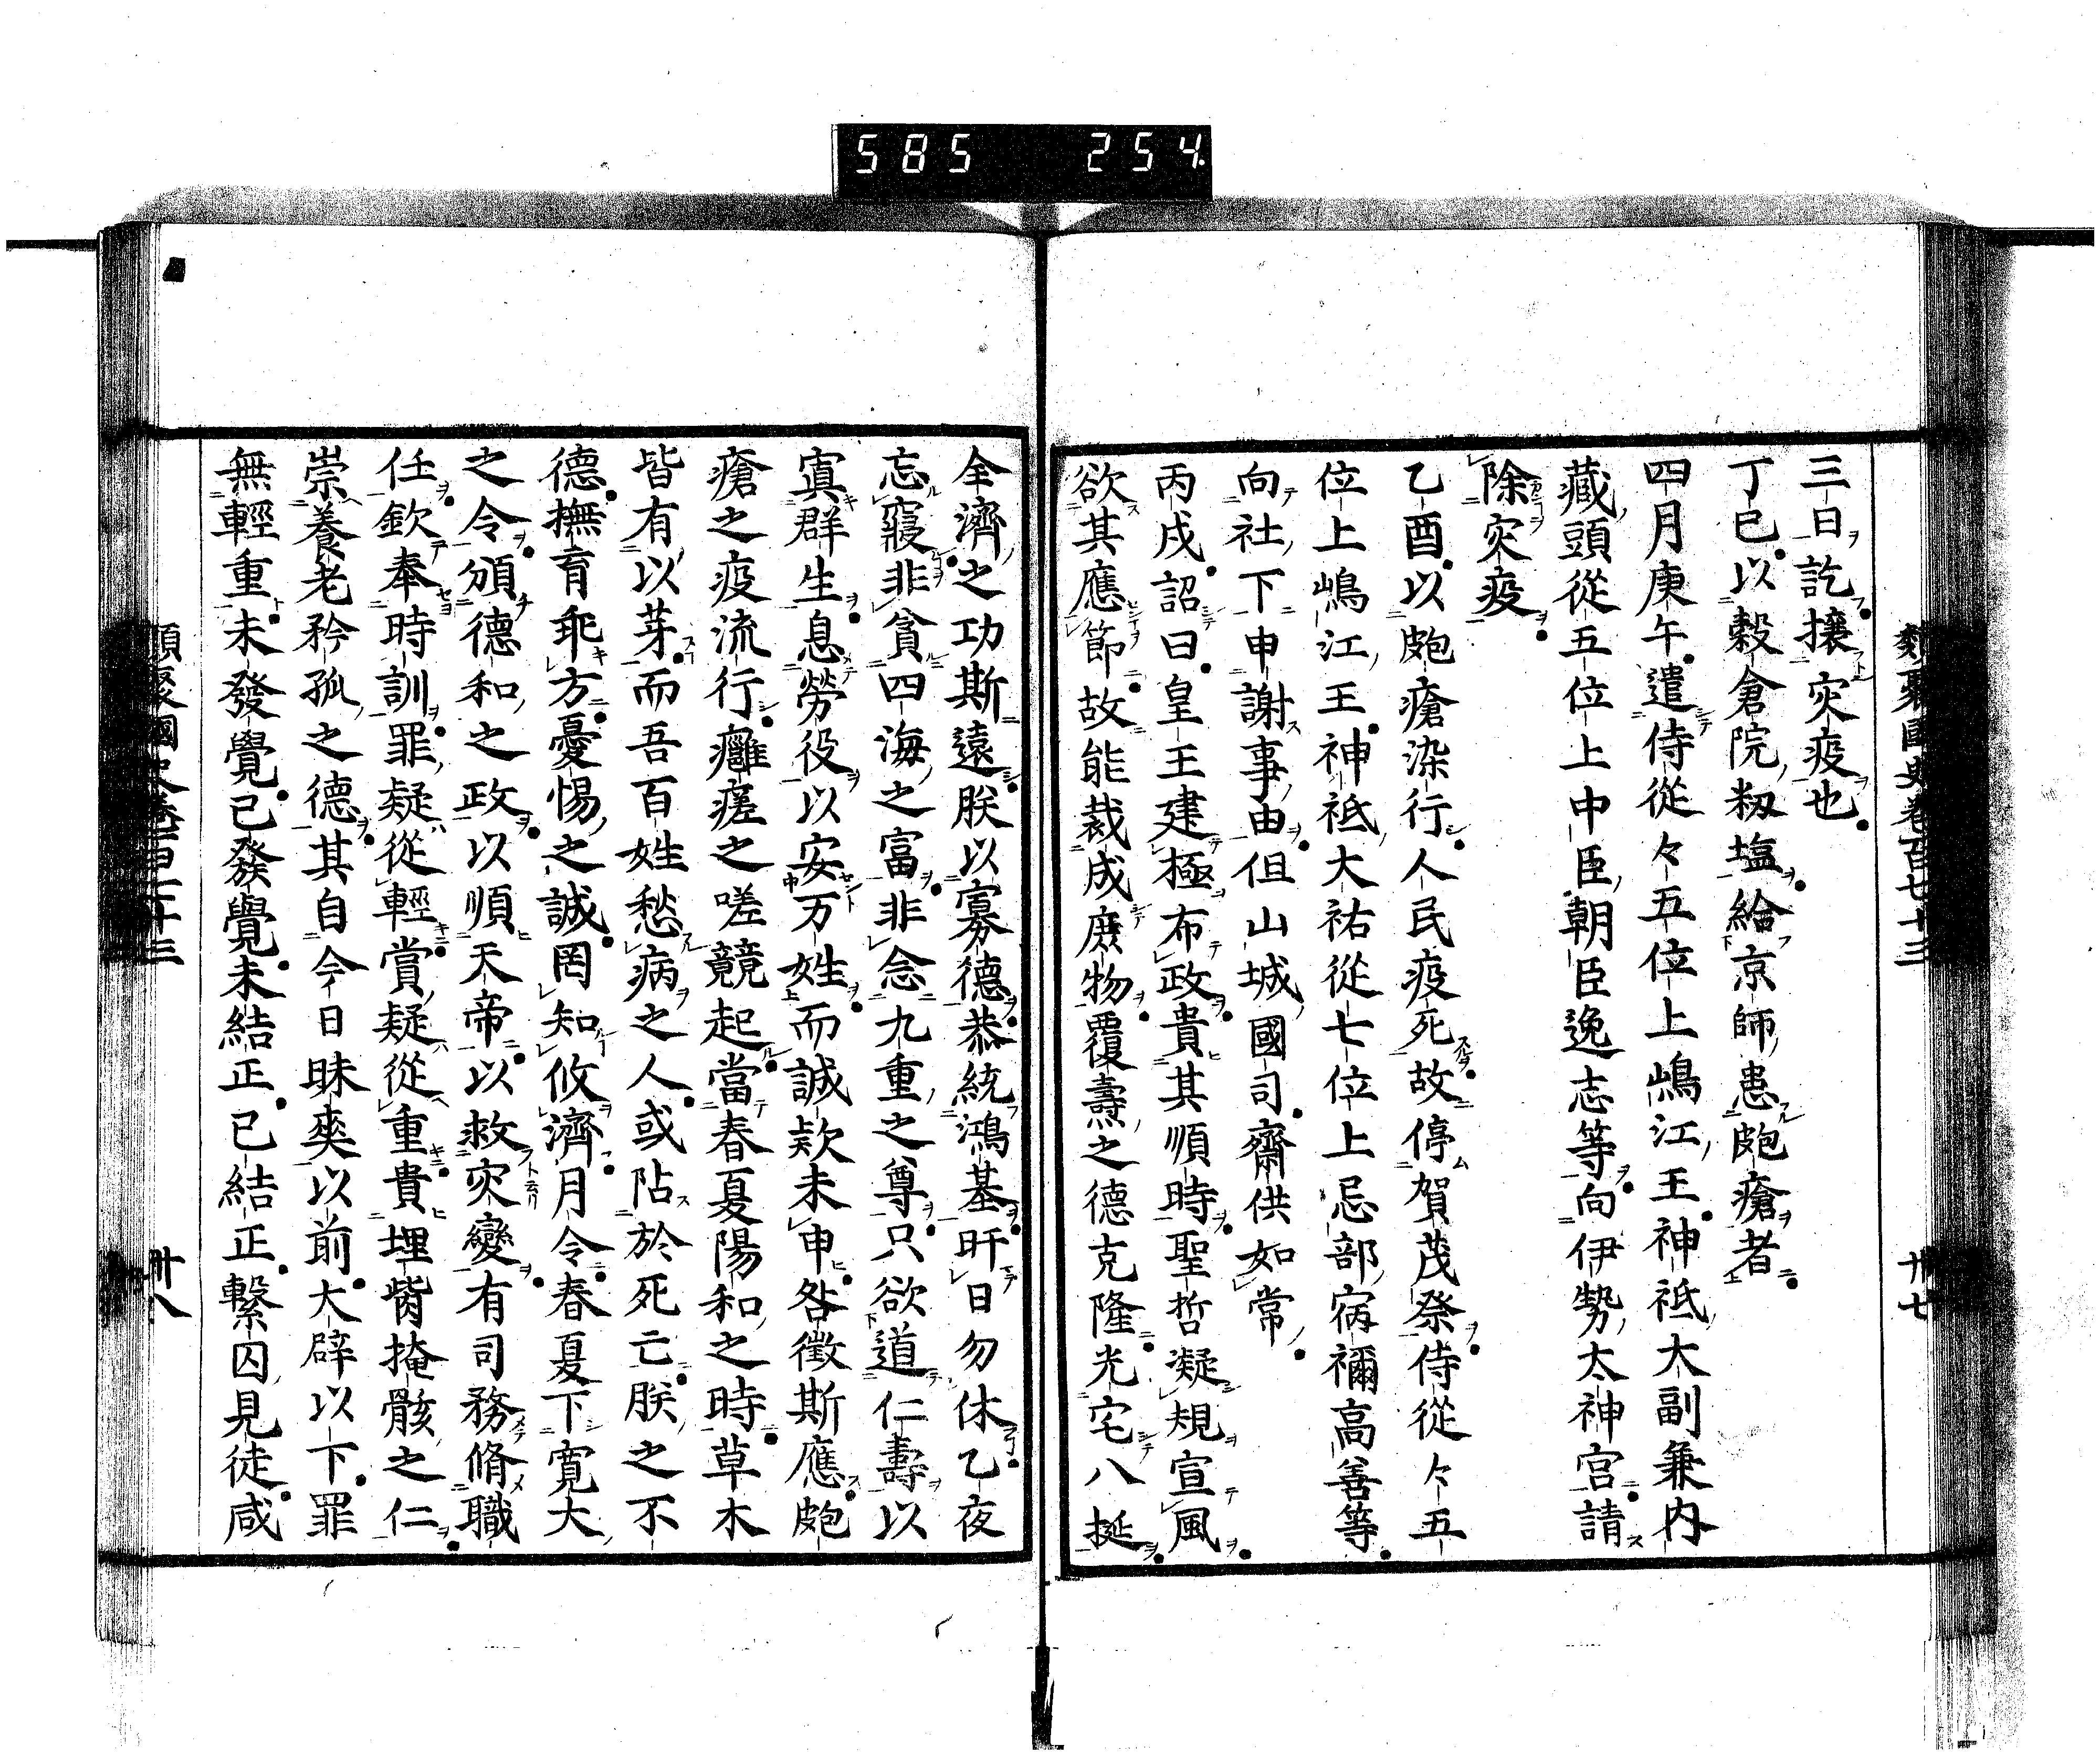 585 254
類聚國史卷百七十三 卅七
三日訖攘灾疫也
丁巳以穀倉院籾塩給京師患皰瘡者
四月庚午遣侍從々五位上嶋江王神祇大副兼内
藏頭從五位上中臣朝臣逸志等向伊勢太神宮請
除灾疫
乙酉以皰瘡染行人民疫死故停賀茂祭侍從々五
位上嶋江王神祇大祐從七位上忌部㾱禰高善等
向社下申謝事由但山城國司齋供如常
丙戌詔曰皇王建極布政貴其順時聖哲凝規宣風
欲其應節故能裁成庶物覆燾之德克隆光宅八挻
全濟之功斯遠朕以寡德恭統鴻基旰日勿休乙夜
忘寢非貪四海之富非念九重之尊只欲道仁壽以
寘群生息勞役以安万姓而誠欵未申咎徵斯應皰
瘡之疫流行癰瘥之嗟競起當春夏陽和之時草木
皆有以芽而吾百姓愁病之人或阽於死亡朕之不
德撫育乖方憂惕之誠罔知攸濟月令春夏下寬大
之令頒德和之政以順天帝以救灾變有司務脩職
任欽奉時訓罪疑從輕賞疑從重貴埋胔掩骸之仁
崇養老矜孤之德其自今日昧爽以前大辟以下罪
無輕重未發覺已發覺未結正已結正繋囚見徒咸
類聚國史卷百七十三 卅八